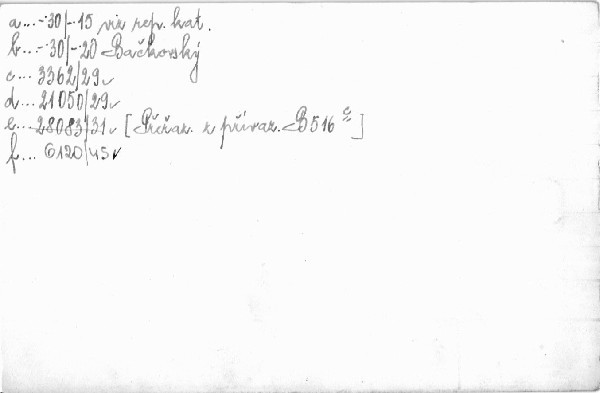 a...-30/-15 viz rep. kat.
b...-30/-20 Bačkovský
c...3362/29✓
d...21050/29✓
e...28083/31✓ [Přeřaz. z přívaz. B516 č]
f...6120/45✓